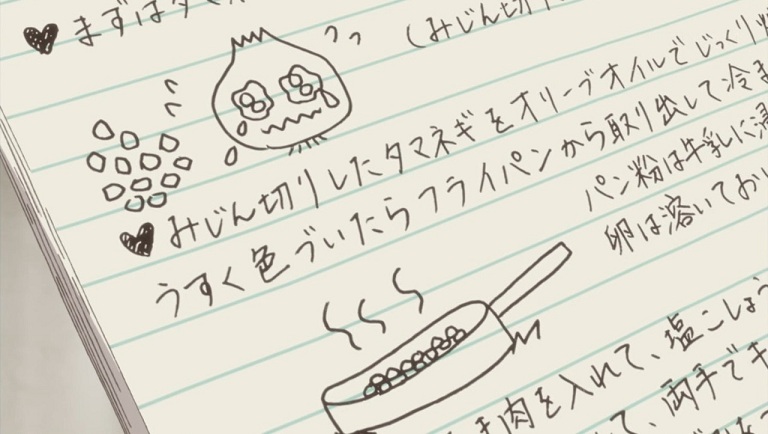 まずは
(みじん切り
みじん切りしたタマネギをオリーブオイルでじっくり
うすく色づいたらフライパンから取り出して冷ま
パン粉は牛乳に浸
卵は溶いてお
肉を入れて、塩こしょう
て、両手で